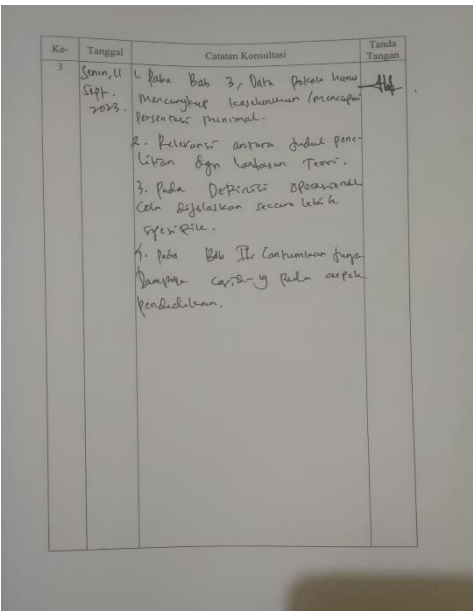 Ke- Tanggal Catatan Konsultasi Tanda Tangan
3 Senin, 11 Sept. 2023.
1. Pada Bab 3, Data harus
mencangkup keseluruhan /mencapai
persentasi minimal.
2. Relevansi antara judul pene-
litian dgn landasan Teori.
3. Pada Definisi operasional
dijelaskan secara lebih
spesifik.
4. Pada Bab II, cantumkan juga
Dampak covid-19 pada aspek
pendidikan.